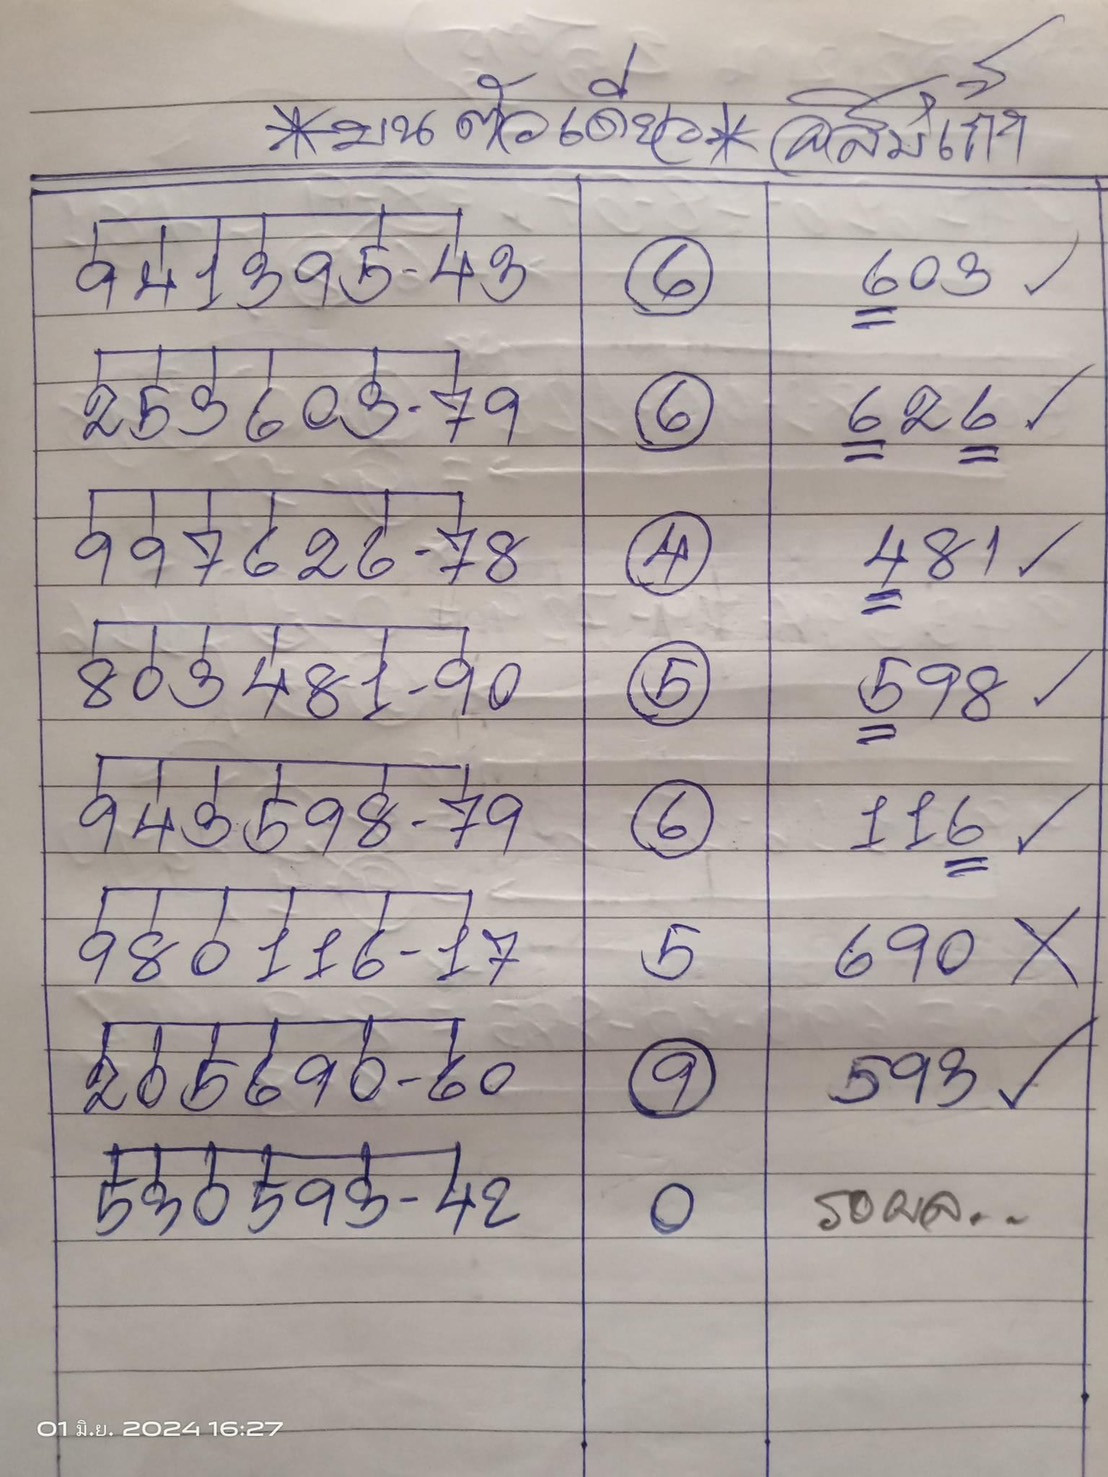 *บน ตัวเดียว*
941395-43 6 603 ✓
253603-79 6 626 ✓
997626-78 4 481 ✓
803481-90 5 598 ✓
943598-79 6 116 ✓
980116-17 5 690 X
205690-60 9 593 ✓
530593-42 0 รอผล..
01 มิ.ย. 2024 16:27